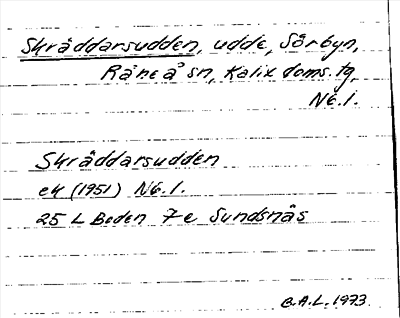 Skräddarsudden, udde, Sörbyn,
Råneå sn, Kalix doms. tg,
Nb. l.
Skräddarsudden
ek (1951) Nb. l.
25 L Boden 7e Sundsnäs
B.A.L. 1973